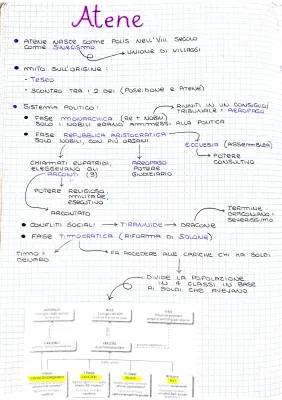 Atene
• ATENE NASCE COME POLIS NELL'VIII SECOLO
COME SINECISMO
→ UNIONE DI VILLAGGI
• MITO SULL'ORIGINE:
- TESEO
- SCONTRO TRA I 2 DEI (POSEIDONE E ATENE)
• SISTEMA POLITICO:
RIUNITI IN UN CONSIGLIO/
TRIBUNALE = AEROPAGO
• FASE MONARCHICA (RE + NOBILI)
SOLO I NOBILI ERANO AMMESSI ALLA POLITICA
• FASE REPUBBLICA ARISTOCRATICA
SOLO NOBILI, CON PIÙ ORGANI
ECCLESIA (ASSEMBLEA)
POTERE
CONSULTIVO
CHIAMATI EUPATRIDI,
ELEGGEVANO GLI
ARCONTI (9)
AEROPAGO
POTERE
GIUDIZIARIO
POTERE RELIGIOSO,
MILITARE,
ESECUTIVO
ARCONTATO
TERMINE
DRACONIANO =
SEVERISSIMO
• CONFLITTI SOCIALI → TIRANNIDE → DRACONE
• FASE TIMOCRATICA (RIFORMA DI SOLONE)
TIMO =
DENARO
FA ACCEDERE ALLE CARICHE CHI HA SOLDI
DIVIDE LA POPOLAZIONE
IN 4 CLASSI IN BASE
AI SOLDI CHE AVEVANO